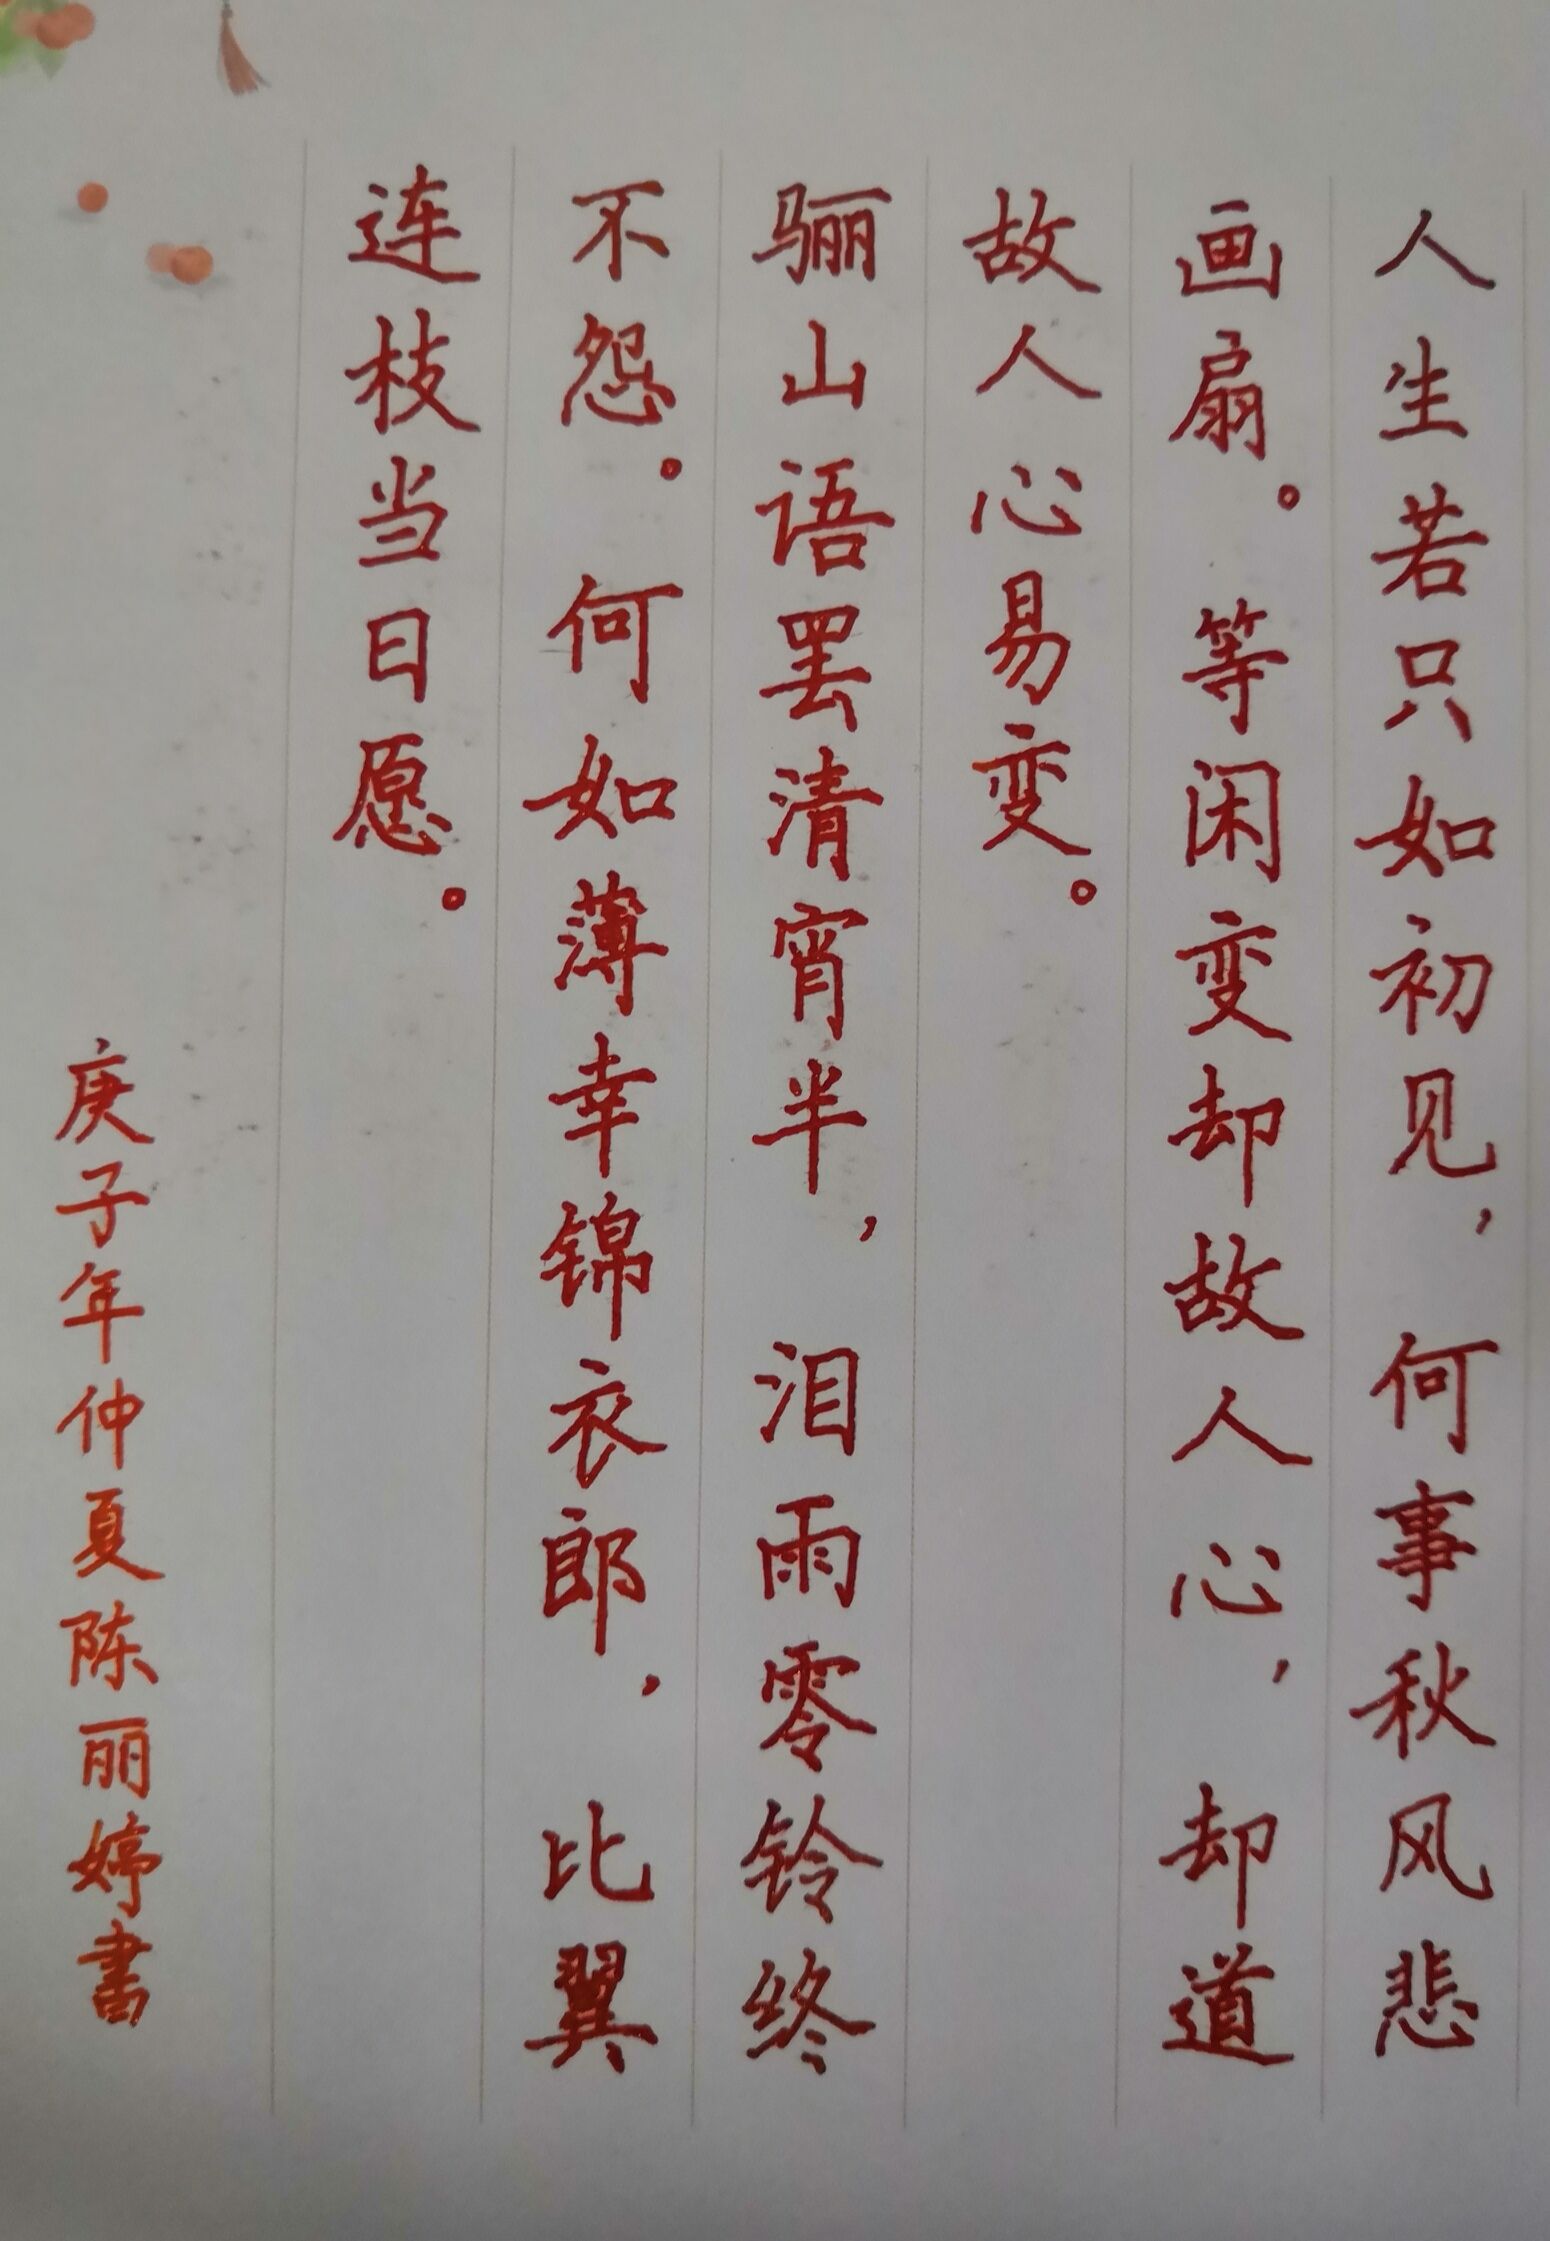 人生若只如初见，何事秋风悲
画扇。等闲变却故人心，却道
故人心易变。
骊山语罢清宵半，泪雨零铃终
不怨。何如薄幸锦衣郎，比翼
连枝当日愿。
庚子年仲夏陈丽婷書